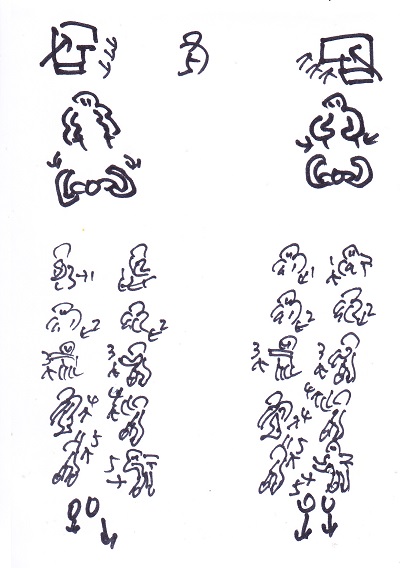 1 1 1
2 2 2 2
3 3 3 3
4 4 4 4
5 5 5 5